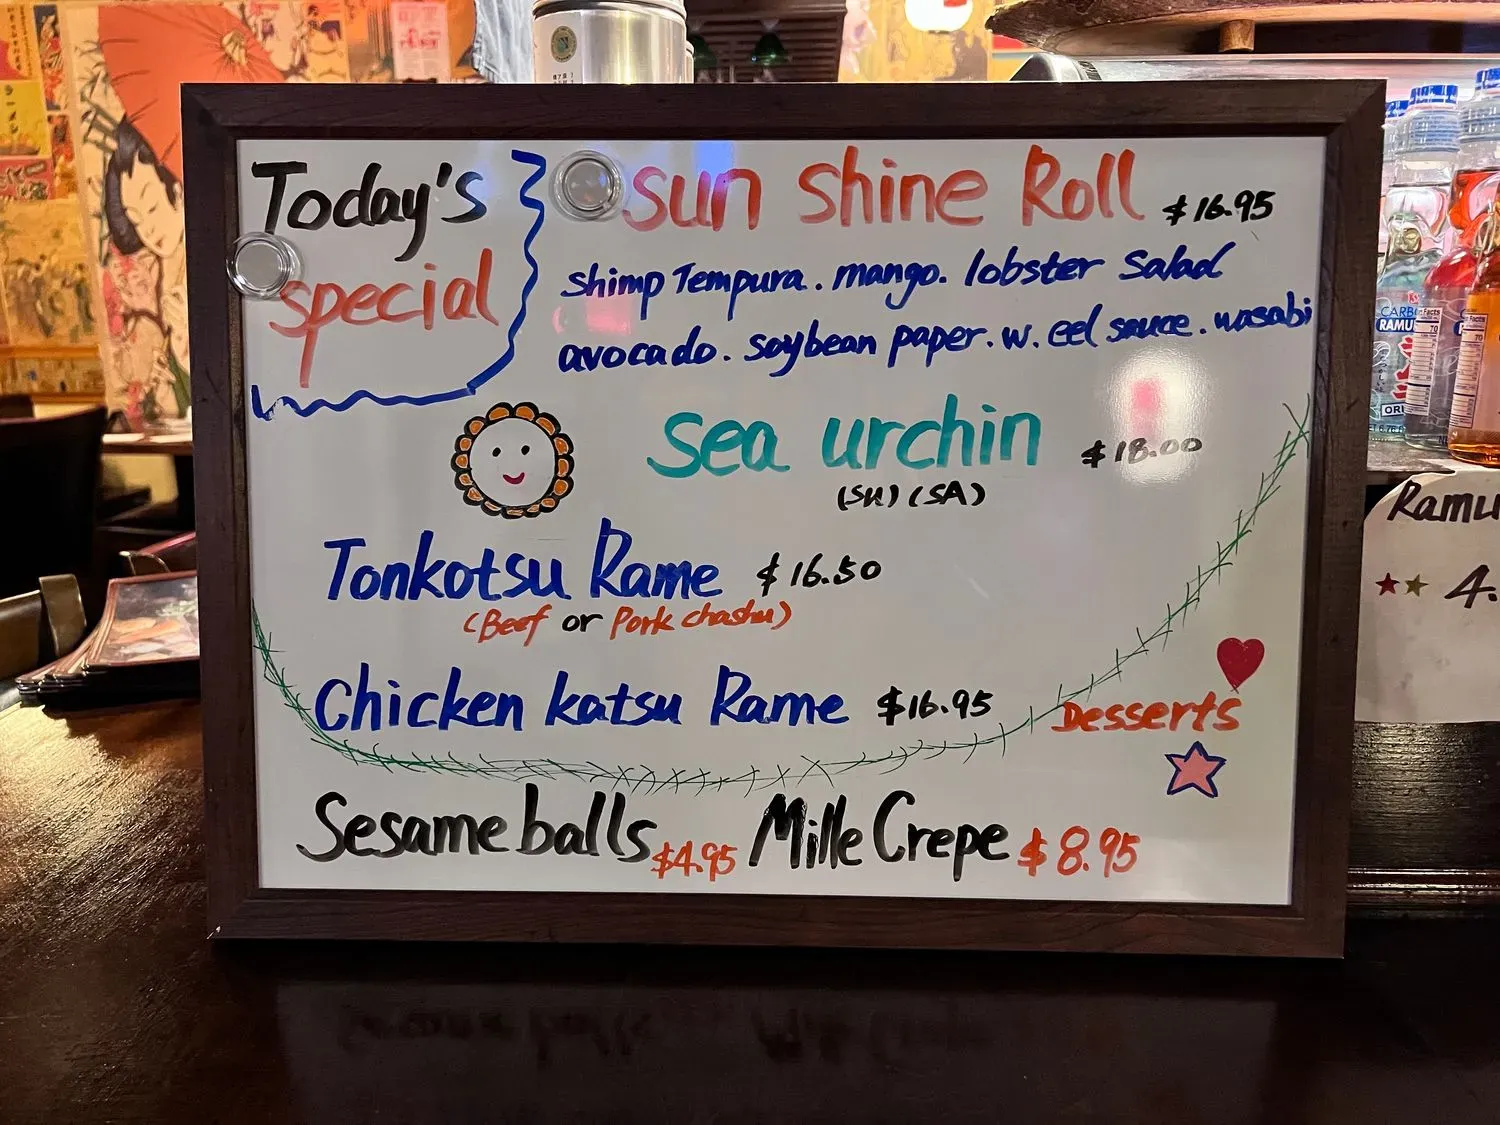 Today's
special
sun shine Roll $16.95
shimp Tempura. mango. lobster Salad
avocado. soybean paper. w. eel sauce. wasabi
Sea urchin $18.00
(SU) (SA)
Tonkotsu Rame $16.50
(Beef or Pork chashu)
Chicken katsu Rame $16.95
Desserts
Sesame balls $4.95 Mille Crepe $8.95
Ramu
4.
CARB
RAMU
ORI
ラーメン